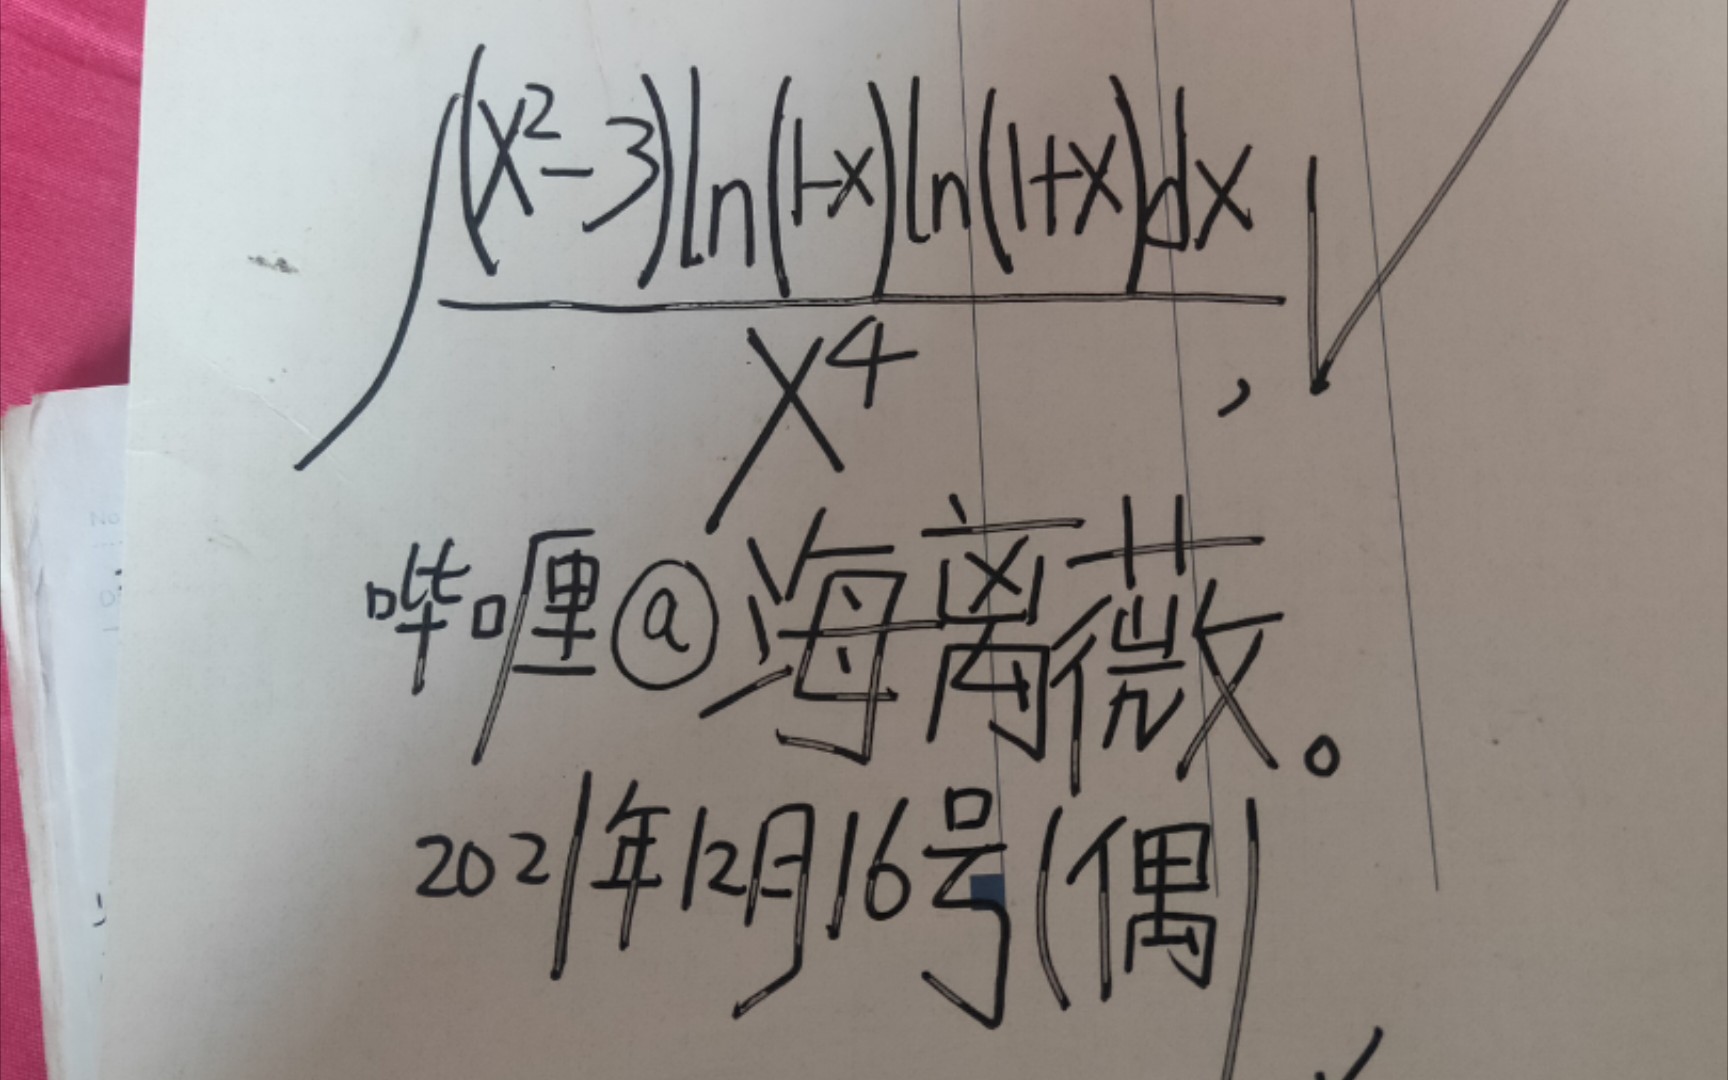 ∫(x²-3)ln(1-x)ln(1+x)dx
x⁴ ,
哔哩@海离薇。
2021年12月16号(偶)